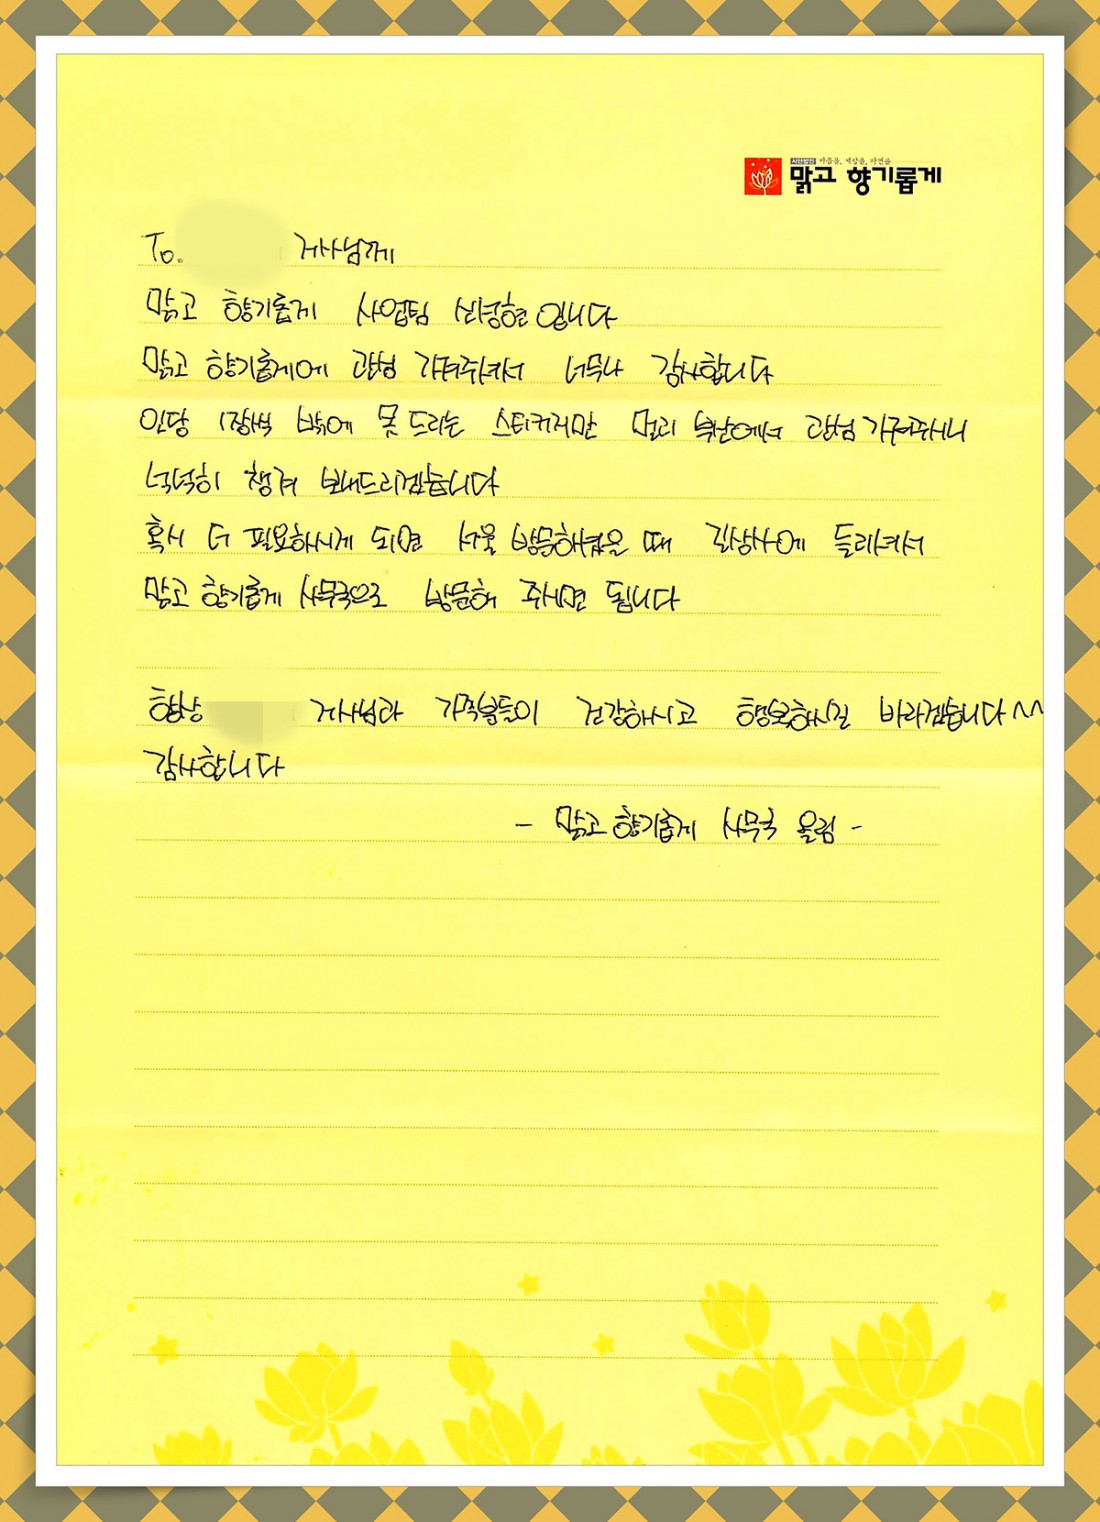 마음을, 세상을, 자연을
맑고 향기롭게
To. 거사님께
맑고 향기롭게 사업팀 신성현입니다
맑고 향기롭게에 관심 가져주셔서 너무나 감사합니다
인당 1장씩 밖에 못 드리는 스티커지만 멀리 부산에서 관심 가져주시니
넉넉히 챙겨 보내드리겠습니다
혹시 더 필요하시게 되면 서울 방문하셨을 때 길상사에 들리셔서
맑고 향기롭게 사무국으로 방문해 주시면 됩니다
항상 거사님과 가족분들이 건강하시고 행복하시길 바라겠습니다^^
감사합니다
- 맑고 향기롭게 사무국 올림 -